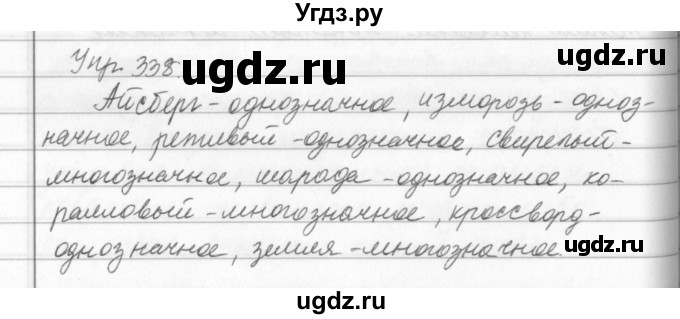 Угдз.ру
Упр. 338.
ugdz.ru ugdz.ru
Айсберг - однозначное, изморозь - одноз-
начное, ретивый - однозначное, свирепый -
многозначное, шарада - однозначное, ко-
ралловый - многозначное, кроссворд -
однозначное, земля - многозначное.
ugdz.ru ugdz.ru
ugdz.ru